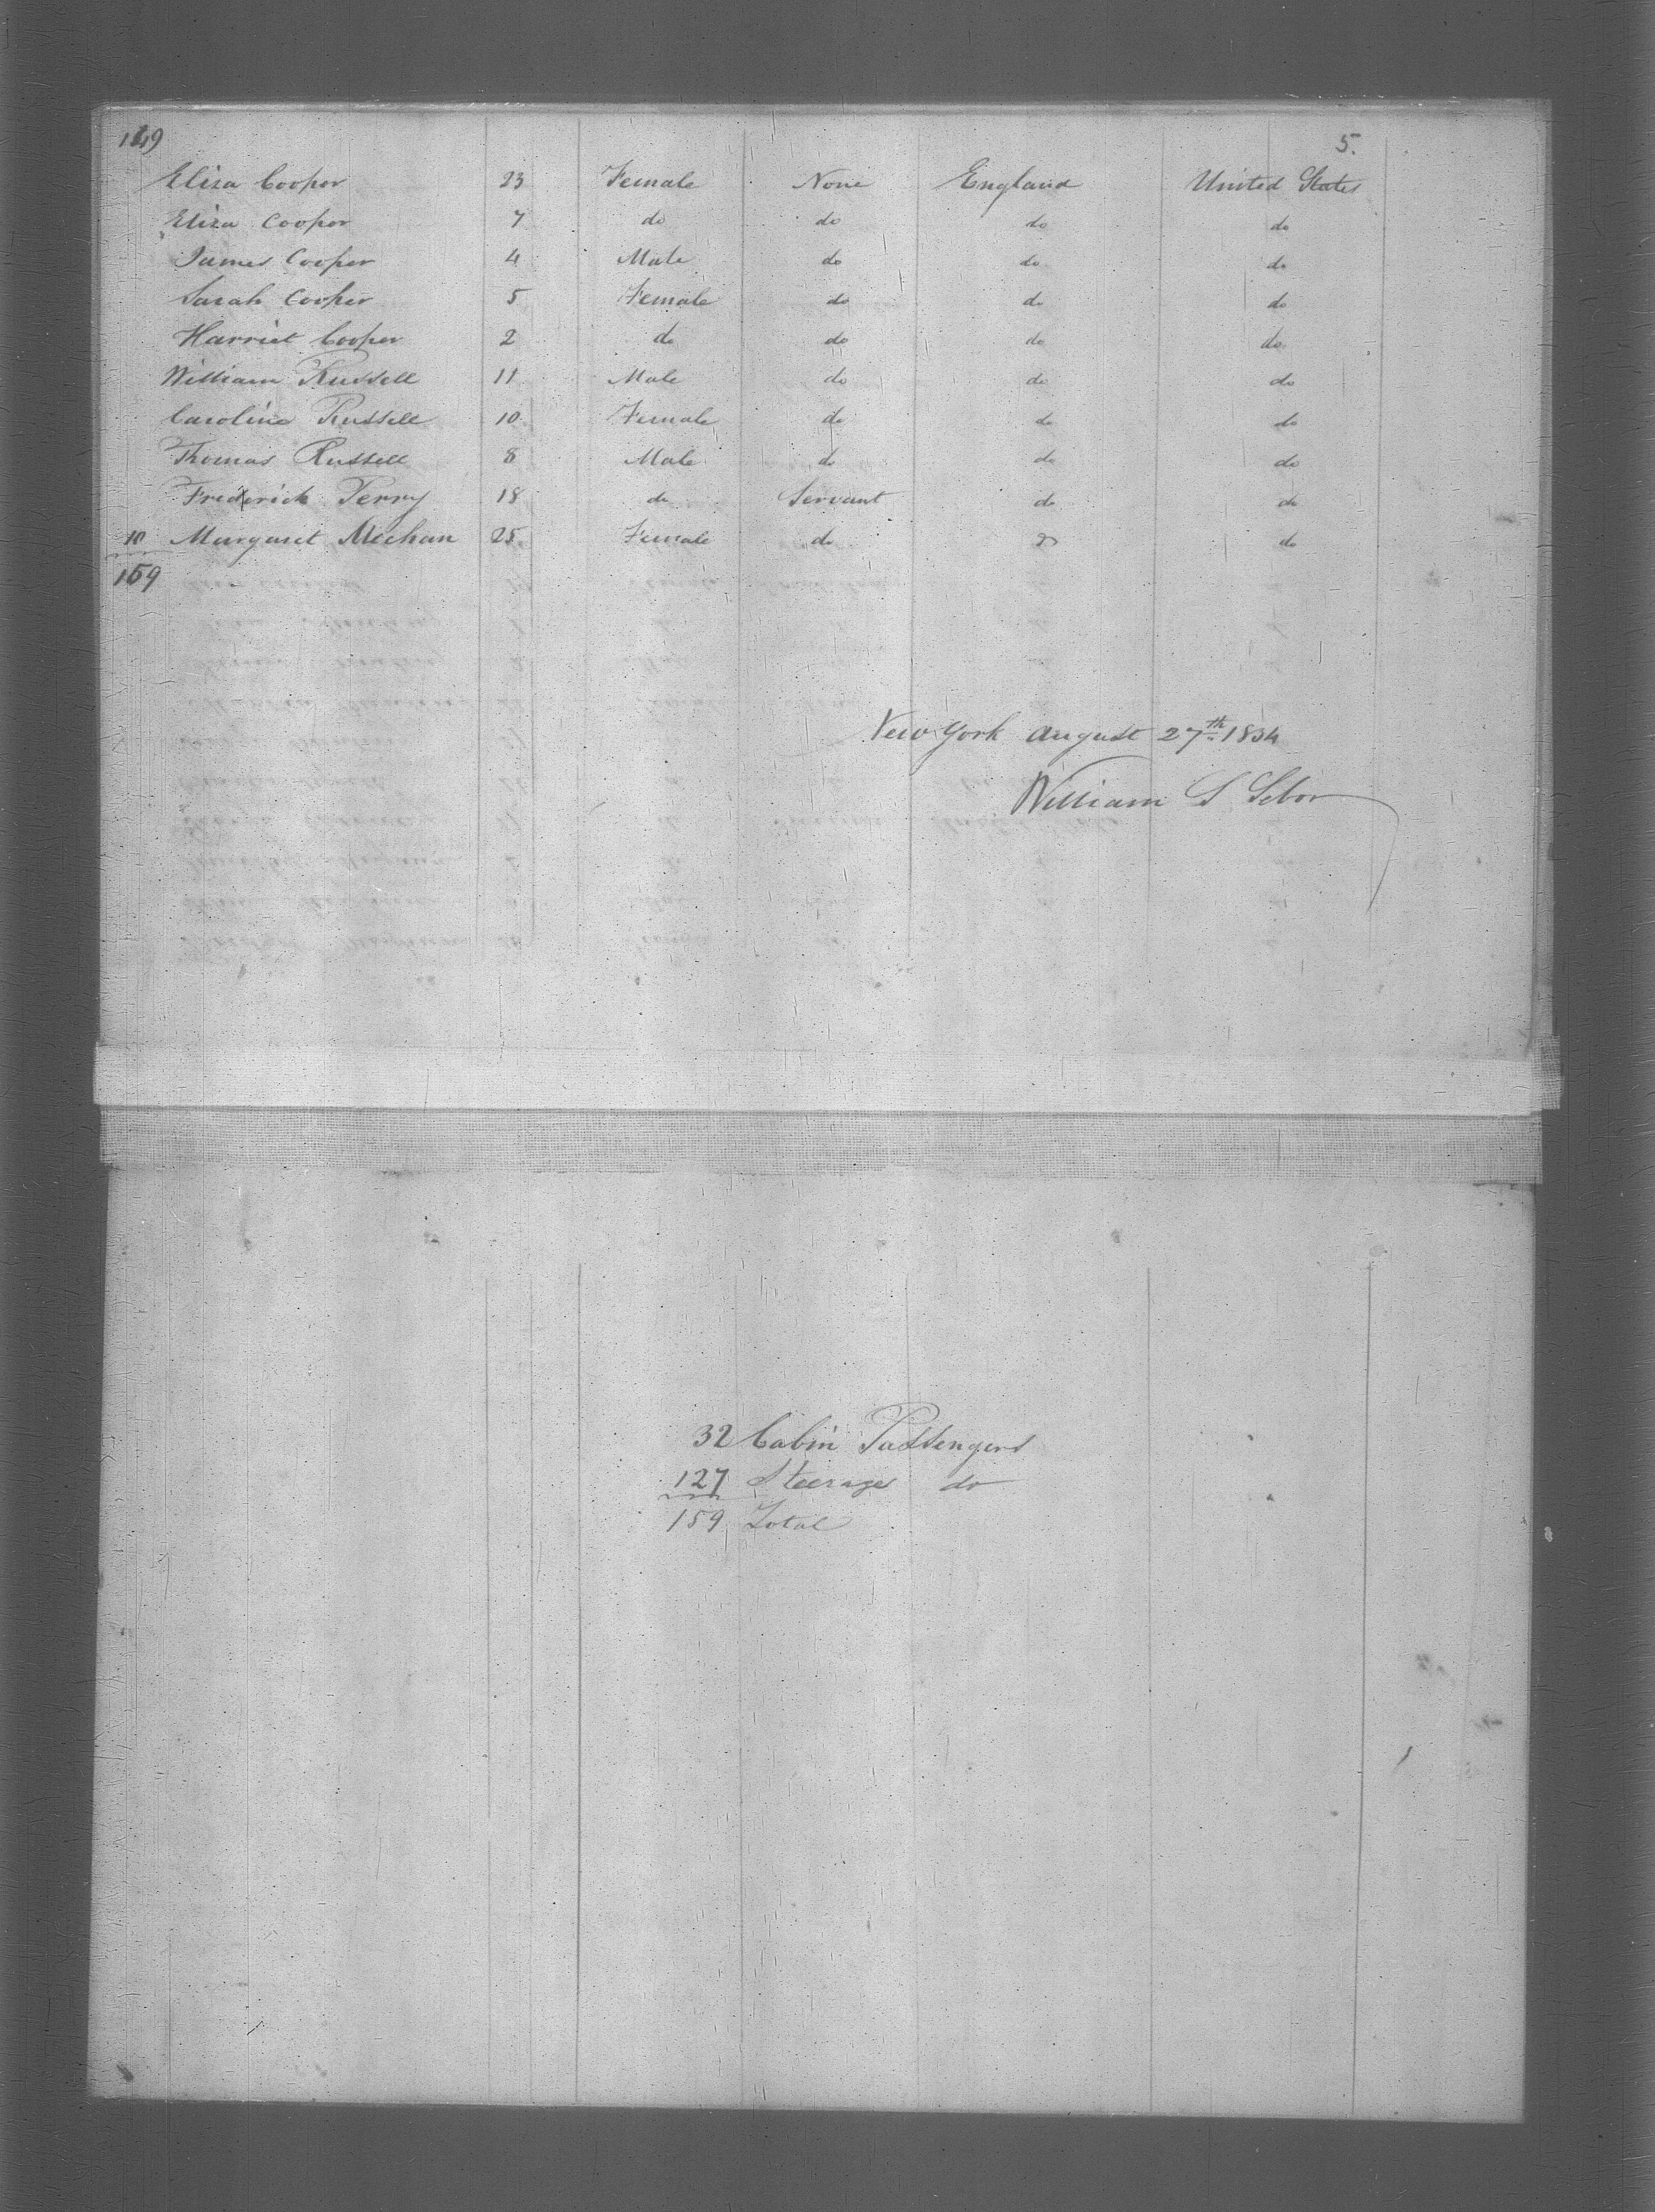 149 5.
Eliza Cooper 23 Female None England United States
Eliza Cooper 7 do do do do
James Cooper 4 Male do do do
Sarah Cooper 5 Female do do do
Harriet Cooper 2 do do do do
William Russell 11 Male do do do
Caroline Russell 10 Female do do do
Thomas Russell 8 Male do do do
Frederick Perry 18 do Servant do do
10 Margaret Mechan 25 Female do do do
159
New York August 27th 1834
William S Sebor
32 Cabin Passengers
127 Steerage do
159 Total